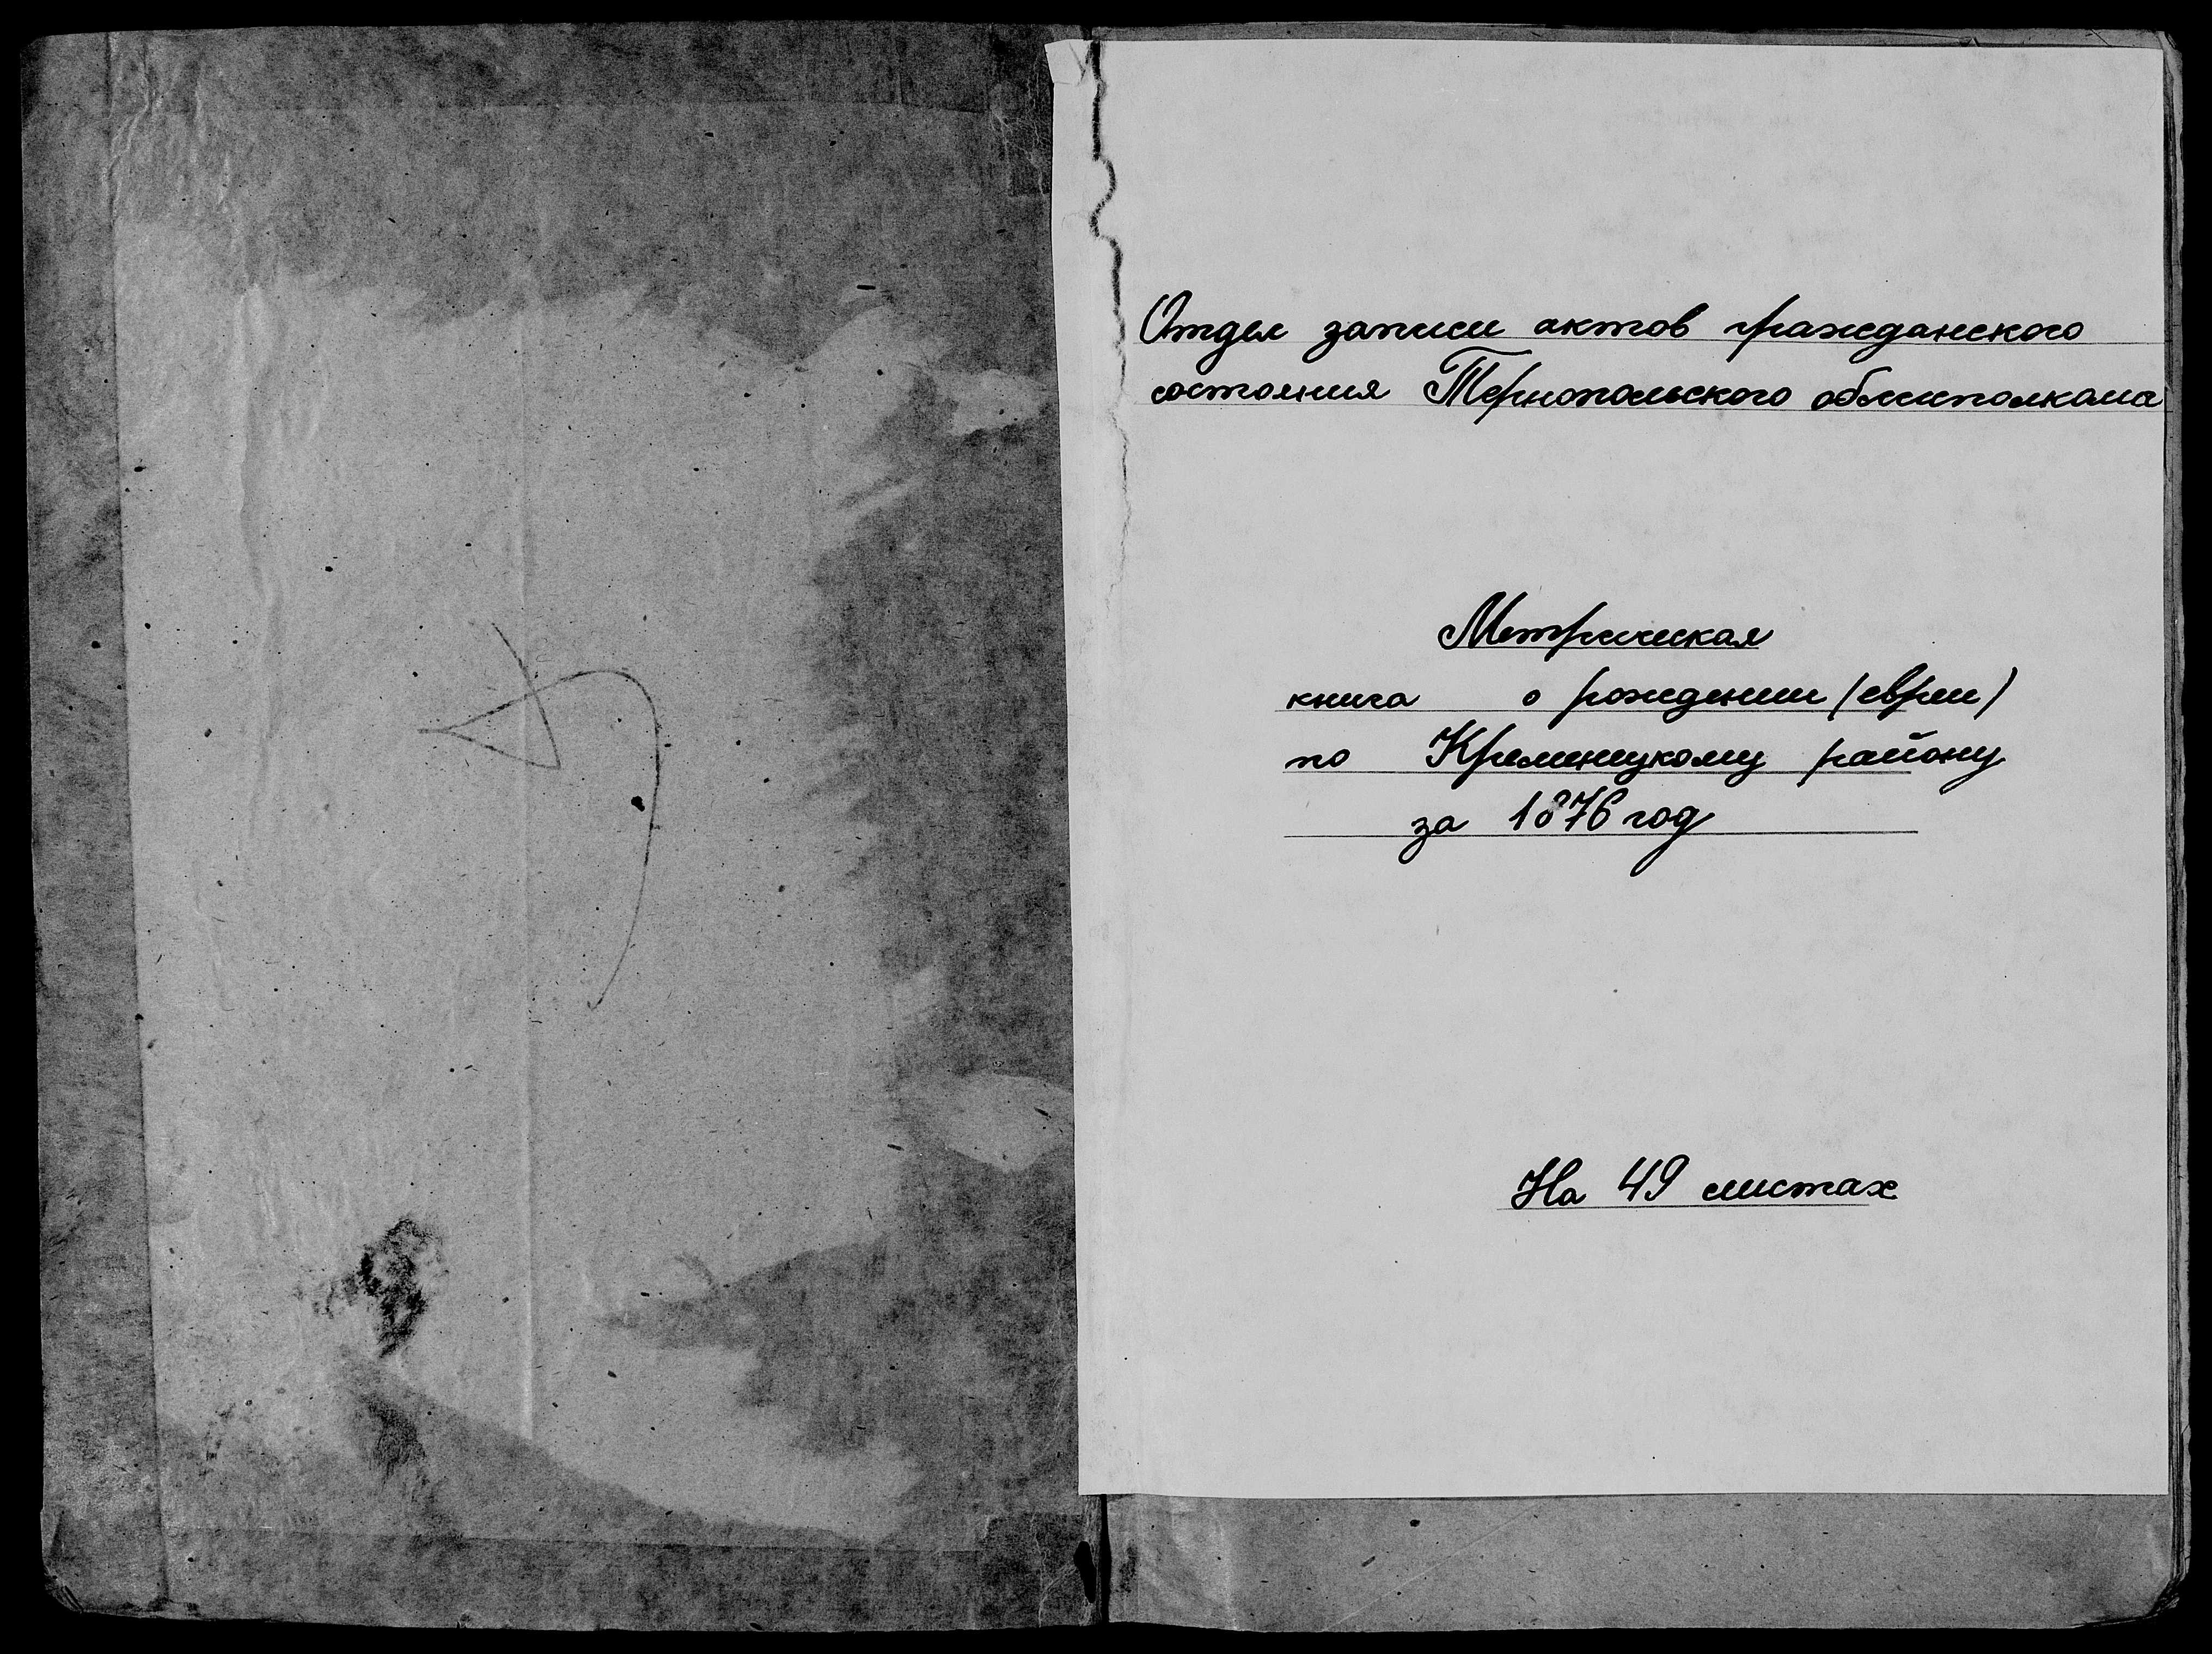 Отдел записи актов гражданского
состояния Тернопольского облисполкома
Метрическая
книга о рождении (евреи)
по Кременецкому району
за 1876 год
На 49 листах